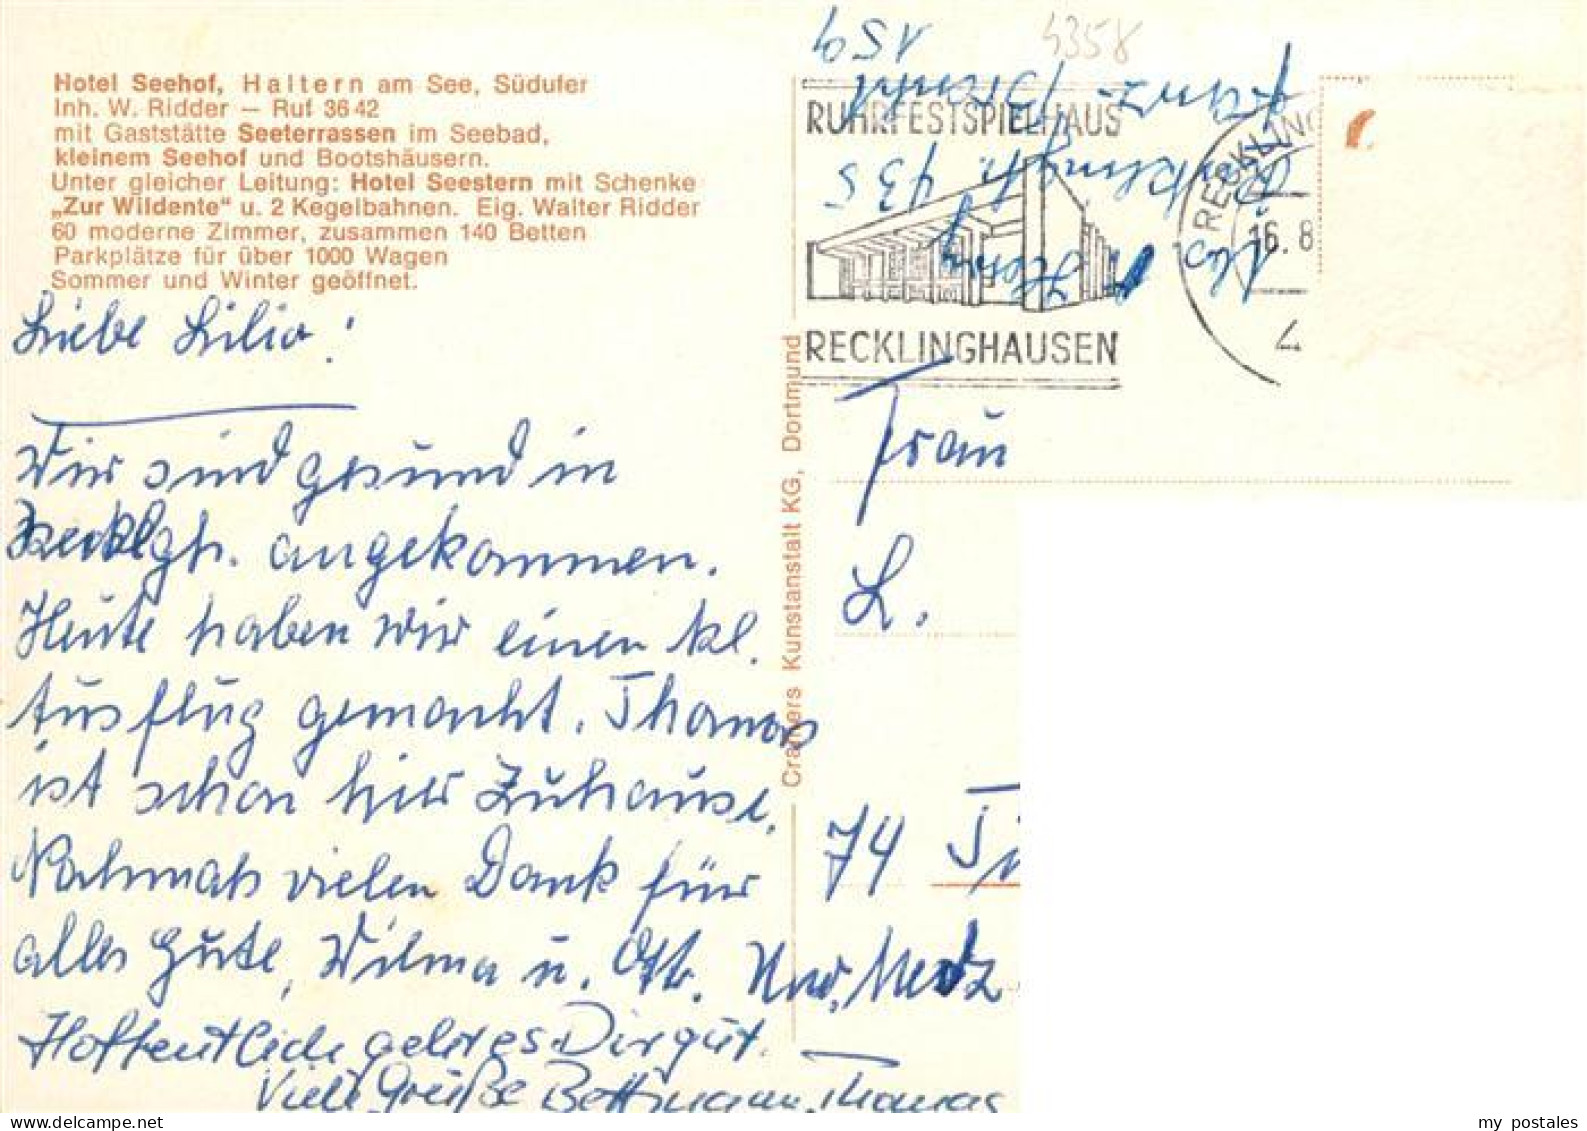 Hotel Seehof, Haltern am See, Südufer
Inh. W. Ridder — Ruf 36 42
mit Gaststätte Seeterrassen im Seebad,
kleinem Seehof und Bootshäusern.
Unter gleicher Leitung: Hotel Seestern mit Schenke
„Zur Wildente" u. 2 Kegelbahnen. Eig. Walter Ridder
60 moderne Zimmer, zusammen 140 Betten
Parkplätze für über 1000 Wagen
Sommer und Winter geöffnet.
Liebe Lilio!
Wir sind gesund in
Recklgh. angekommen.
Heute haben wir einen kl.
Ausflug gemacht. Thomas
ist schon hier Zuhause.
Nochmals vielen Dank für
alles Gute, Wilma u. Otto.
Hoffentlich geht es Dir gut.
Viele Grüße Thomas
Cramers Kunstanstalt KG, Dortmund
4358
159
435
RUHRFESTSPIELHAUS
RECKLINGHAUSEN
RECKLING
16. 8
4
Frau
L.
74
my postales